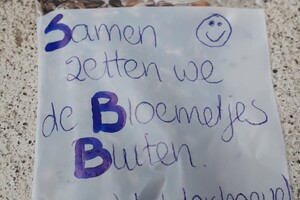 Samen
zetten we
de Bloemetjes
Buiten.